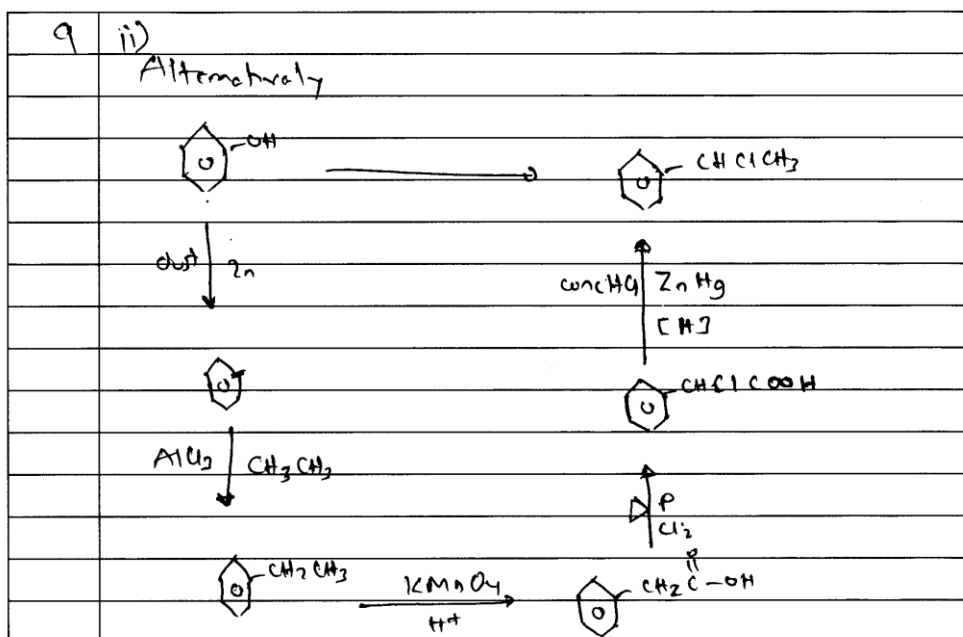 9 ii)
Alternatively
OH
CHClCH3
dust Zn
conc HCl Zn Hg
[H]
CHCl COOH
AlCl3 CH3CH3
P
Cl2
CH2CH3
KMnO4
H+
O
CH2C-OH